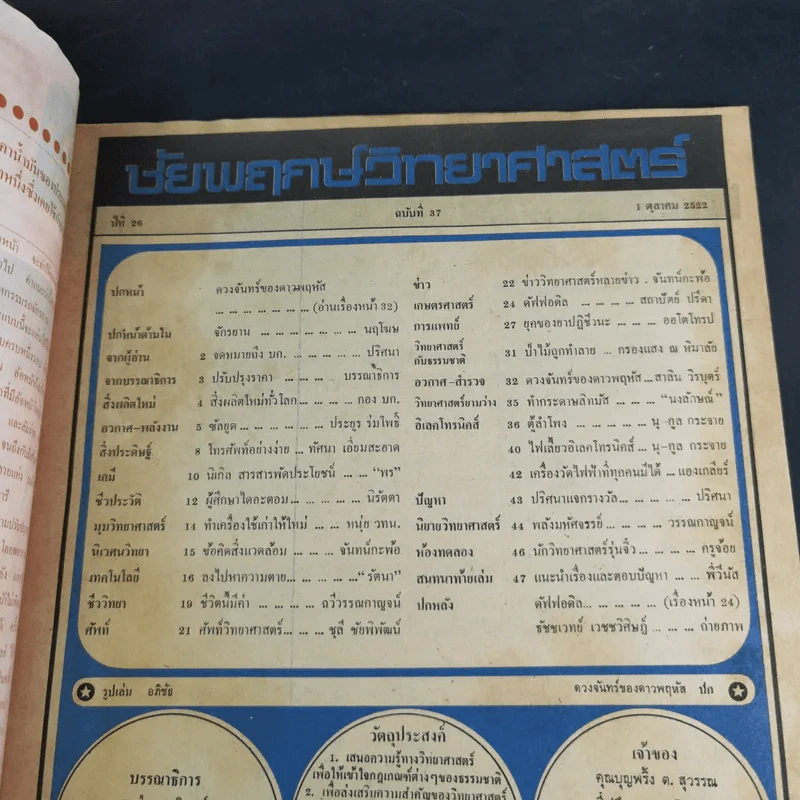 ชัยพฤกษ์วิทยาศาสตร์
ปีที่ 26 ฉบับที่ 37 1 ตุลาคม 2522
ปกหน้า ดวงจันทร์ของดาวพฤหัส
... ... ... ... ... ... (อ่านเรื่องหน้า 32)
ปกหน้าด้านใน จักรยาน ... ... ... ... ... ... นฤโฆษ
จากผู้อ่าน 2 จดหมายถึง บก. ... ... ... ... ปริศนา
จากบรรณาธิการ 3 ปรับปรุงราคา ... ... ... บรรณาธิการ
สิ่งผลิตใหม่ 4 สิ่งผลิตใหม่ทั่วโลก ... ... ... กอง บก.
อวกาศ-พลังงาน 5 ซัลยูต ... ... ... ... ประยูร ร่มโพธิ์
สิ่งประดิษฐ์ 8 โทรศัพท์อย่างง่าย ... ทัศนา เอี่ยมสะอาด
เคมี 10 นิเกิล สารสารพัดประโยชน์ ... ... "พร"
ชีวประวัติ 12 ผู้ศึกษาใดอะตอม ... ... ... ... นิรัตตา
มุมวิทยาศาสตร์ 14 ทำเครื่องใช้เก่าให้ใหม่ ... ... หนุ่ย วทน.
นิเวศนวิทยา 15 ข้อคิดสิ่งแวดล้อม ... ... จันทน์กะพ้อ
เทคโนโลยี 16 ลงไปหาความตาย ... ... ... ... "รัตนา"
ชีววิทยา 19 ชีวิตนี้มีค่า ... ... ... ... ถวีวรรณกาญจน์
ศัพท์ 21 ศัพท์วิทยาศาสตร์ ... ... ชุลี ชัยพิพัฒน์
ข่าว 22 ข่าววิทยาศาสตร์หลายข่าว . จันทน์กะพ้อ
เกษตรศาสตร์ 24 ดัฟฟอดิล ... ... ... ... สถาบัตย์ ปรีดา
การแพทย์ 27 ยุคของยาปฏิชีวนะ ... ... ... ออโตโทรป
วิทยาศาสตร์
กับธรรมชาติ 31 ป่าไม้ถูกทำลาย ... กรองแสง ณ หิมาลัย
อวกาศ-สำรวจ 32 ดวงจันทร์ของดาวพฤหัส ... สาลิน วิรบุตร์
วิทยาศาสตร์ยามว่าง 35 ทำกระดาษลิทมัส ... ... ... "นงลักษณ์"
อิเลคโทรนิคส์ 36 ตู้ลำโพง ... ... ... ... นุ-กูล กระจาย
40 ไฟเลี้ยวอิเลคโทรนิคส์ ... นุ-กูล กระจาย
42 เครื่องวัดไฟฟ้าที่ทุกคนมีได้ ... แองเกลียร์
ปัญหา 43 ปริศนาแจกรางวัล ... ... ... ... ปริศนา
นิยายวิทยาศาสตร์ 44 พลังมหัศจรรย์ ... ... ... วรรณกาญจน์
ห้องทดลอง 46 นักวิทยาศาสตร์รุ่นจิ๋ว ... ... ... ครูจ้อย
สนทนาท้ายเล่ม 47 แนะนำเรื่องและตอบปัญหา ... ... พี่วีนัส
ปกหลัง ดัฟฟอดิล ... ... ... ... (เรื่องหน้า 24)
ธัชชเวทย์ เวชชวิศิษฏ์ ... ... ถ่ายภาพ
รูปเล่ม อภิชัย ดวงจันทร์ของดาวพฤหัส ปก
บรรณาธิการ
วัตถุประสงค์
1. เสนอความรู้ทางวิทยาศาสตร์
เพื่อให้เข้าใจกฎเกณฑ์ต่างๆของธรรมชาติ
2. เพื่อส่งเสริมความสำคัญของวิทยาศาสตร์
เจ้าของ
คุณบุญพริ้ง ต. สุวรรณ